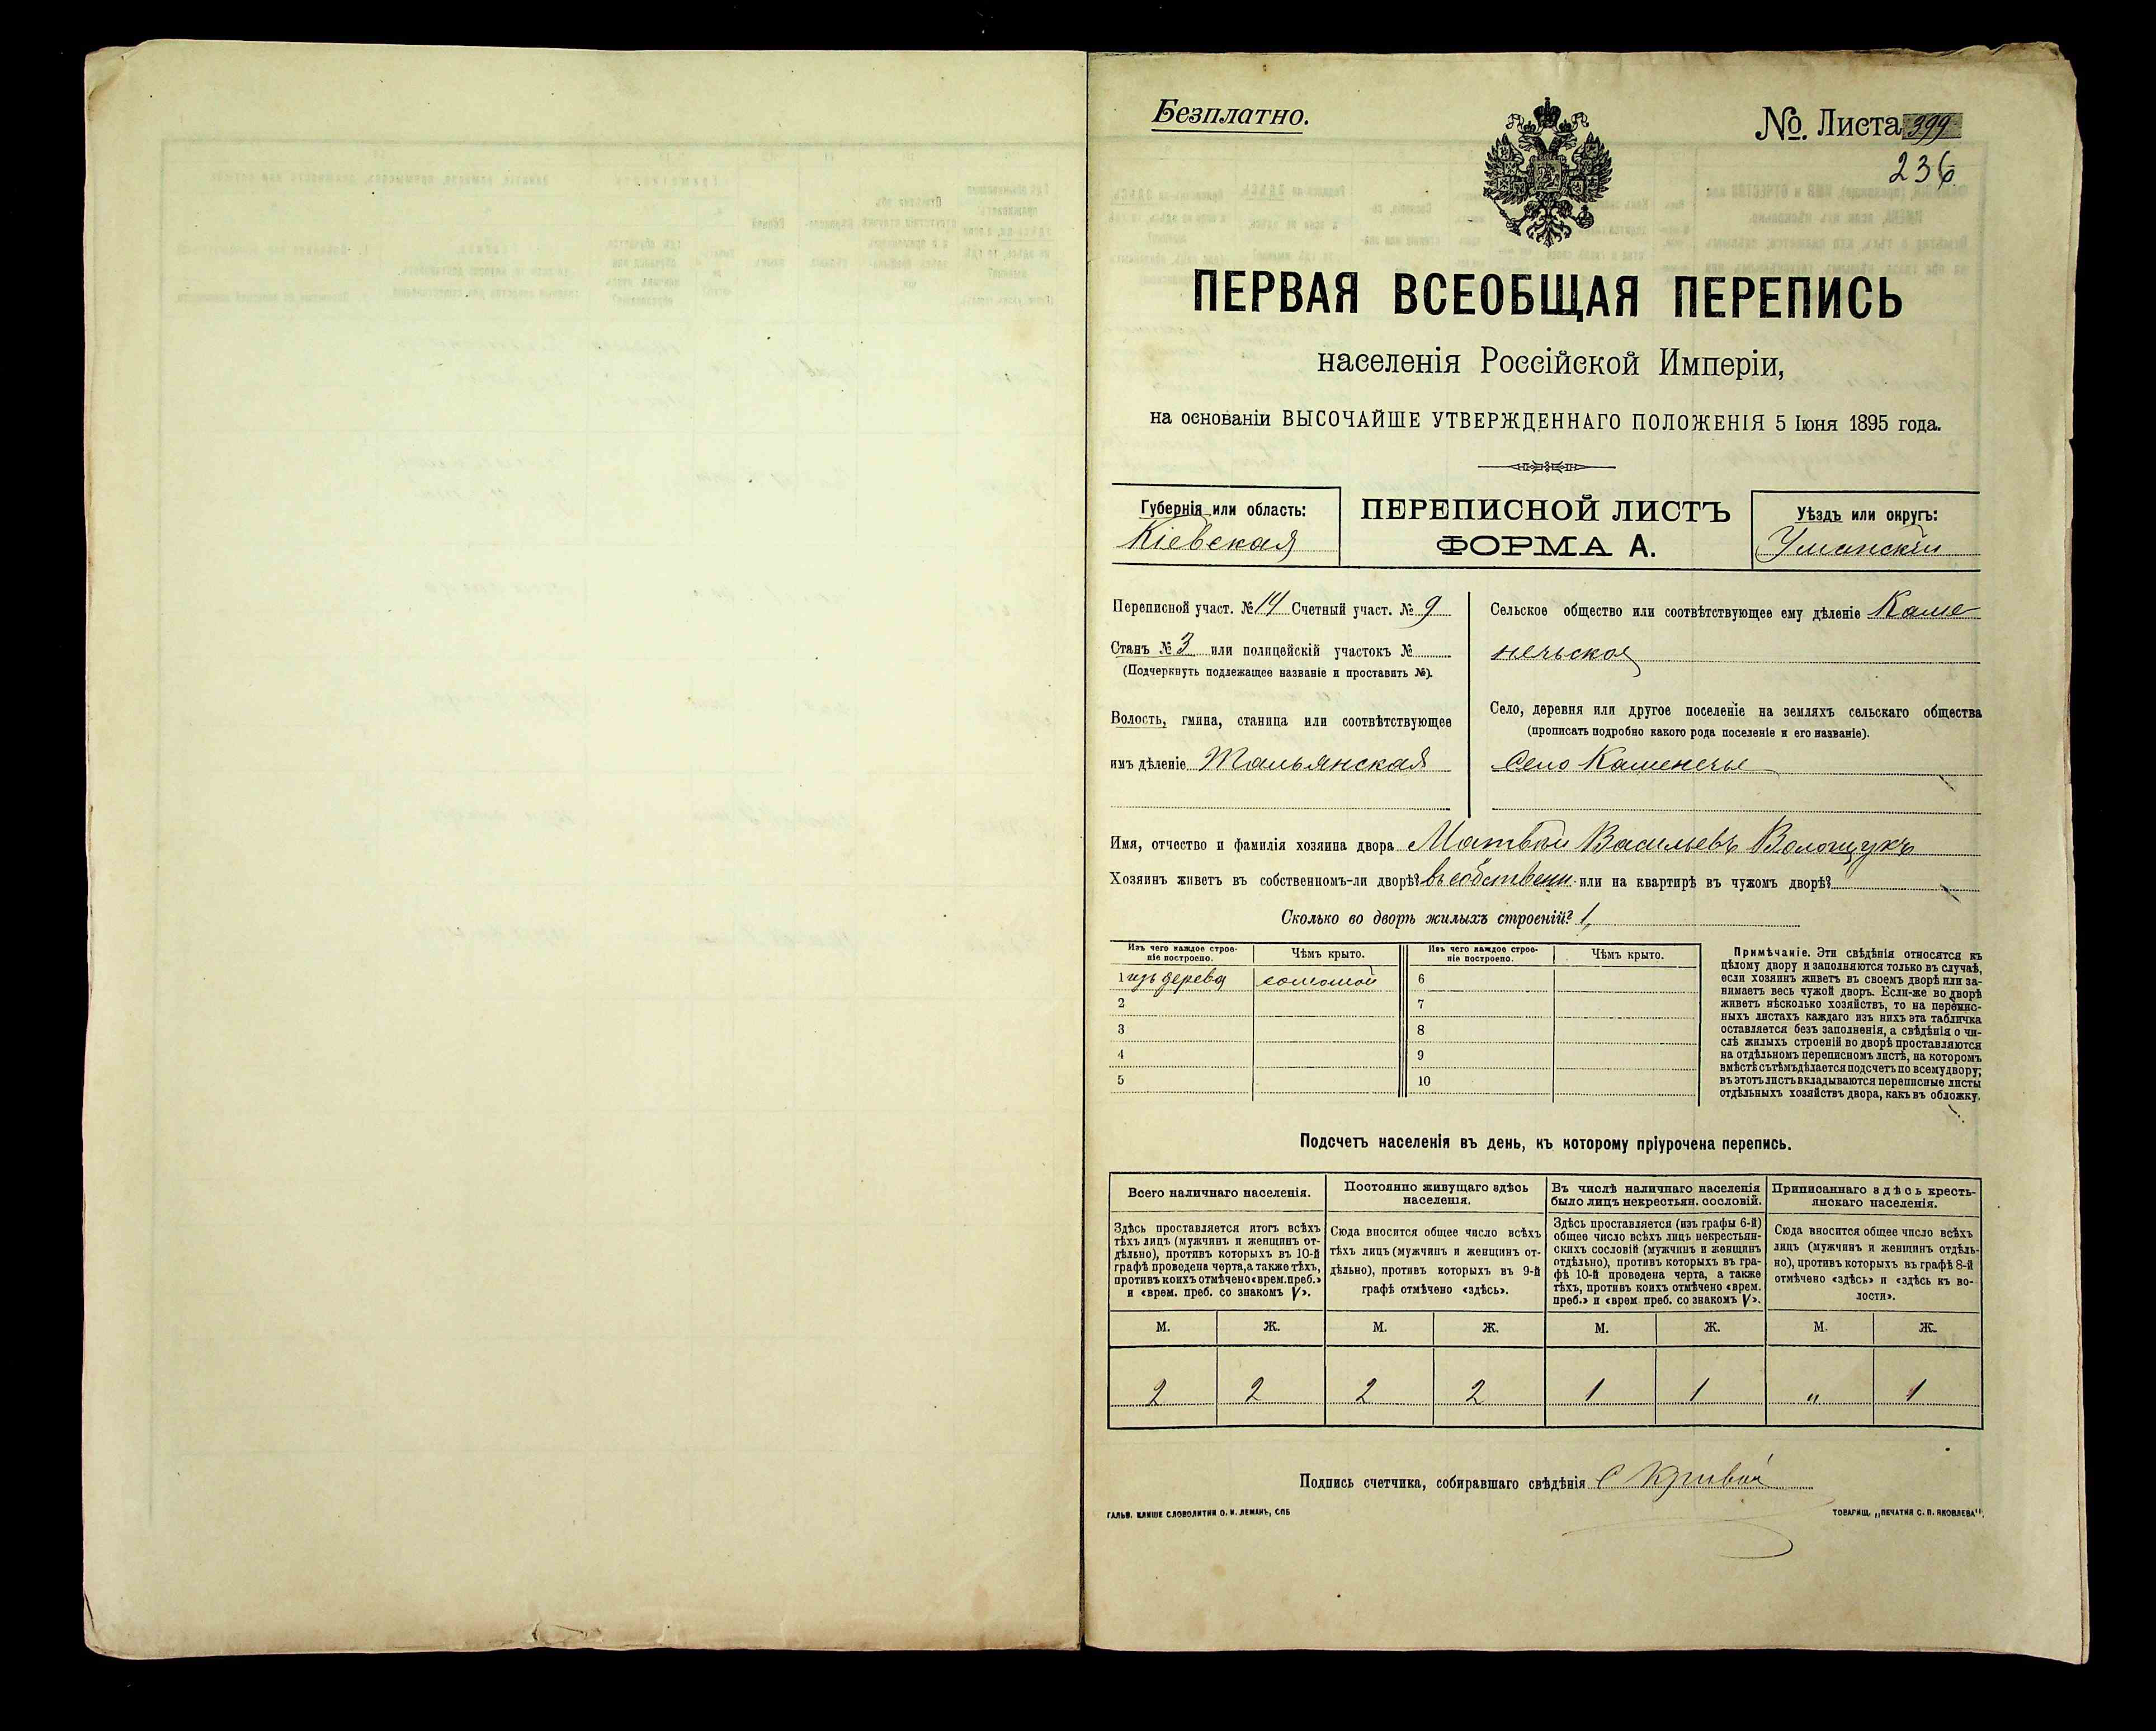 Безплатно.
№. Листа 399
236
ПЕРВАЯ ВСЕОБЩАЯ ПЕРЕПИСЬ
населенія Россійской Имперіи,
на основаніи ВЫСОЧАЙШЕ УТВЕРЖДЕННАГО ПОЛОЖЕНІЯ 5 Іюня 1895 года.
Губернія или область:
Кіевская
ПЕРЕПИСНОЙ ЛИСТЪ
ФОРМА А.
Уѣздъ или округъ:
Уманскій
Переписной участ. № 14 Счетный участ. № 9
Станъ № 3 или полицейскій участокъ №
(Подчеркнуть подлежащее названіе и проставить №).
Волость, гмина, станица или соотвѣтствующее
имъ дѣленіе Тальянская
Сельское общество или соотвѣтствующее ему дѣленіе Каме
нечьское
Село, деревня или другое поселеніе на земляхъ сельскаго общества
(прописать подробно какого рода поселеніе и его названіе).
Село Каменечье
Имя, отчество и фамилія хозяина двора Матвѣй Васильевъ Волощукъ
Хозяинъ живетъ въ собственномъ-ли дворѣ? въ собственн. или на квартирѣ въ чужомъ дворѣ?
Сколько во дворѣ жилыхъ строеній? 1,
Изъ чего каждое строе-
ніе построено.
Чѣмъ крыто.
Изъ чего каждое строе-
ніе построено.
Чѣмъ крыто.
1 изъ дерева соломой 6
2 7
3 8
4 9
5 10
Примѣчаніе. Эти свѣдѣнія относятся къ
цѣлому двору и заполняются только въ случаѣ,
если хозяинъ живетъ въ своемъ дворѣ или за-
нимаетъ весь чужой дворъ. Если-же во дворѣ
живетъ нѣсколько хозяйствъ, то на перепис-
ныхъ листахъ каждаго изъ нихъ эта табличка
оставляется безъ заполненія, а свѣдѣнія о чи-
слѣ жилыхъ строеній во дворѣ проставляются
на отдѣльномъ переписномъ листѣ, на которомъ
вмѣстѣ съ тѣмъ дѣлается подсчетъ по всему двору;
въ этотъ листъ вкладываются переписные листы
отдѣльныхъ хозяйствъ двора, какъ въ обложку.
Подсчетъ населенія въ день, къ которому пріурочена перепись.
Всего наличнаго населенія.
Здѣсь проставляется итогъ всѣхъ
тѣхъ лицъ (мужчинъ и женщинъ от-
дѣльно), противъ которыхъ въ 10-й
графѣ проведена черта, а также тѣхъ,
противъ коихъ отмѣчено «врем. преб.»
и «врем. преб. со знакомъ V».
Постоянно живущаго здѣсь
населенія.
Сюда вносится общее число всѣхъ
тѣхъ лицъ (мужчинъ и женщинъ от-
дѣльно), противъ которыхъ въ 9-й
графѣ отмѣчено «здѣсь».
Въ числѣ наличнаго населенія
было лицъ некрестьян. сословій.
Здѣсь проставляется (изъ графы 6-й)
общее число всѣхъ лицъ некрестьян-
скихъ сословій (мужчинъ и женщинъ
отдѣльно), противъ которыхъ въ гра-
фѣ 10-й проведена черта, а также
тѣхъ, противъ коихъ отмѣчено «врем.
преб.» и «врем преб. со знакомъ V».
Приписаннаго здѣсь кресть-
янскаго населенія.
Сюда вносится общее число всѣхъ
лицъ (мужчинъ и женщинъ отдѣль-
но), противъ которыхъ въ графѣ 8-й
отмѣчено «здѣсь» и «здѣсь къ во-
лости».
М. Ж. М. Ж. М. Ж. М. Ж.
2 2 2 2 1 1 " 1
Подпись счетчика, собиравшаго свѣдѣнія С Кривой
ГАЛЬВ. КЛИШЕ СЛОВОЛИТНИ О. И. ЛЕМАНЪ, СПБ
ТОВАРИЩ. „ПЕЧАТНЯ С. П. ЯКОВЛЕВА".